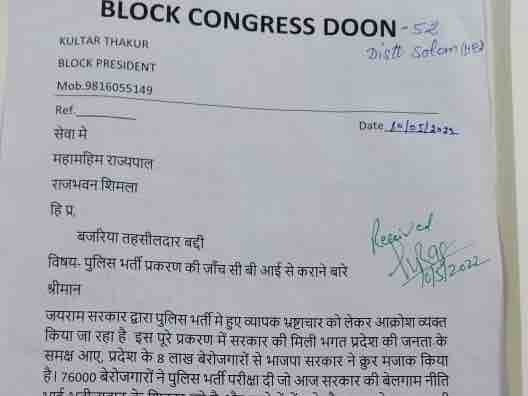 BLOCK CONGRESS DOON - 52
Distt Solan (HP)
KULTAR THAKUR
BLOCK PRESIDENT
Mob.9816055149
Ref.
Date 10/05/2022
सेवा मे
महामहिम राज्यपाल
राजभवन शिमला
हि प्र,
बजरिया तहसीलदार बद्दी
Received
10/5/2022
विषय- पुलिस भर्ती प्रकरण की जाँच सी बी आई से कराने बारे
श्रीमान
जयराम सरकार द्वारा पुलिस भर्ती मे हुए व्यापक भ्रष्टाचार को लेकर आक्रोश व्यक्त
किया जा रहा है इस पूरे प्रकरण में सरकार की मिली भगत प्रदेश की जनता के
समक्ष आए, प्रदेश के 8 लाख बेरोजगारों से भाजपा सरकार ने क्रुर मजाक किया
है। 76000 बेरोजगारों ने पुलिस भर्ती परीक्षा दी जो आज सरकार की बेलगाम नीति